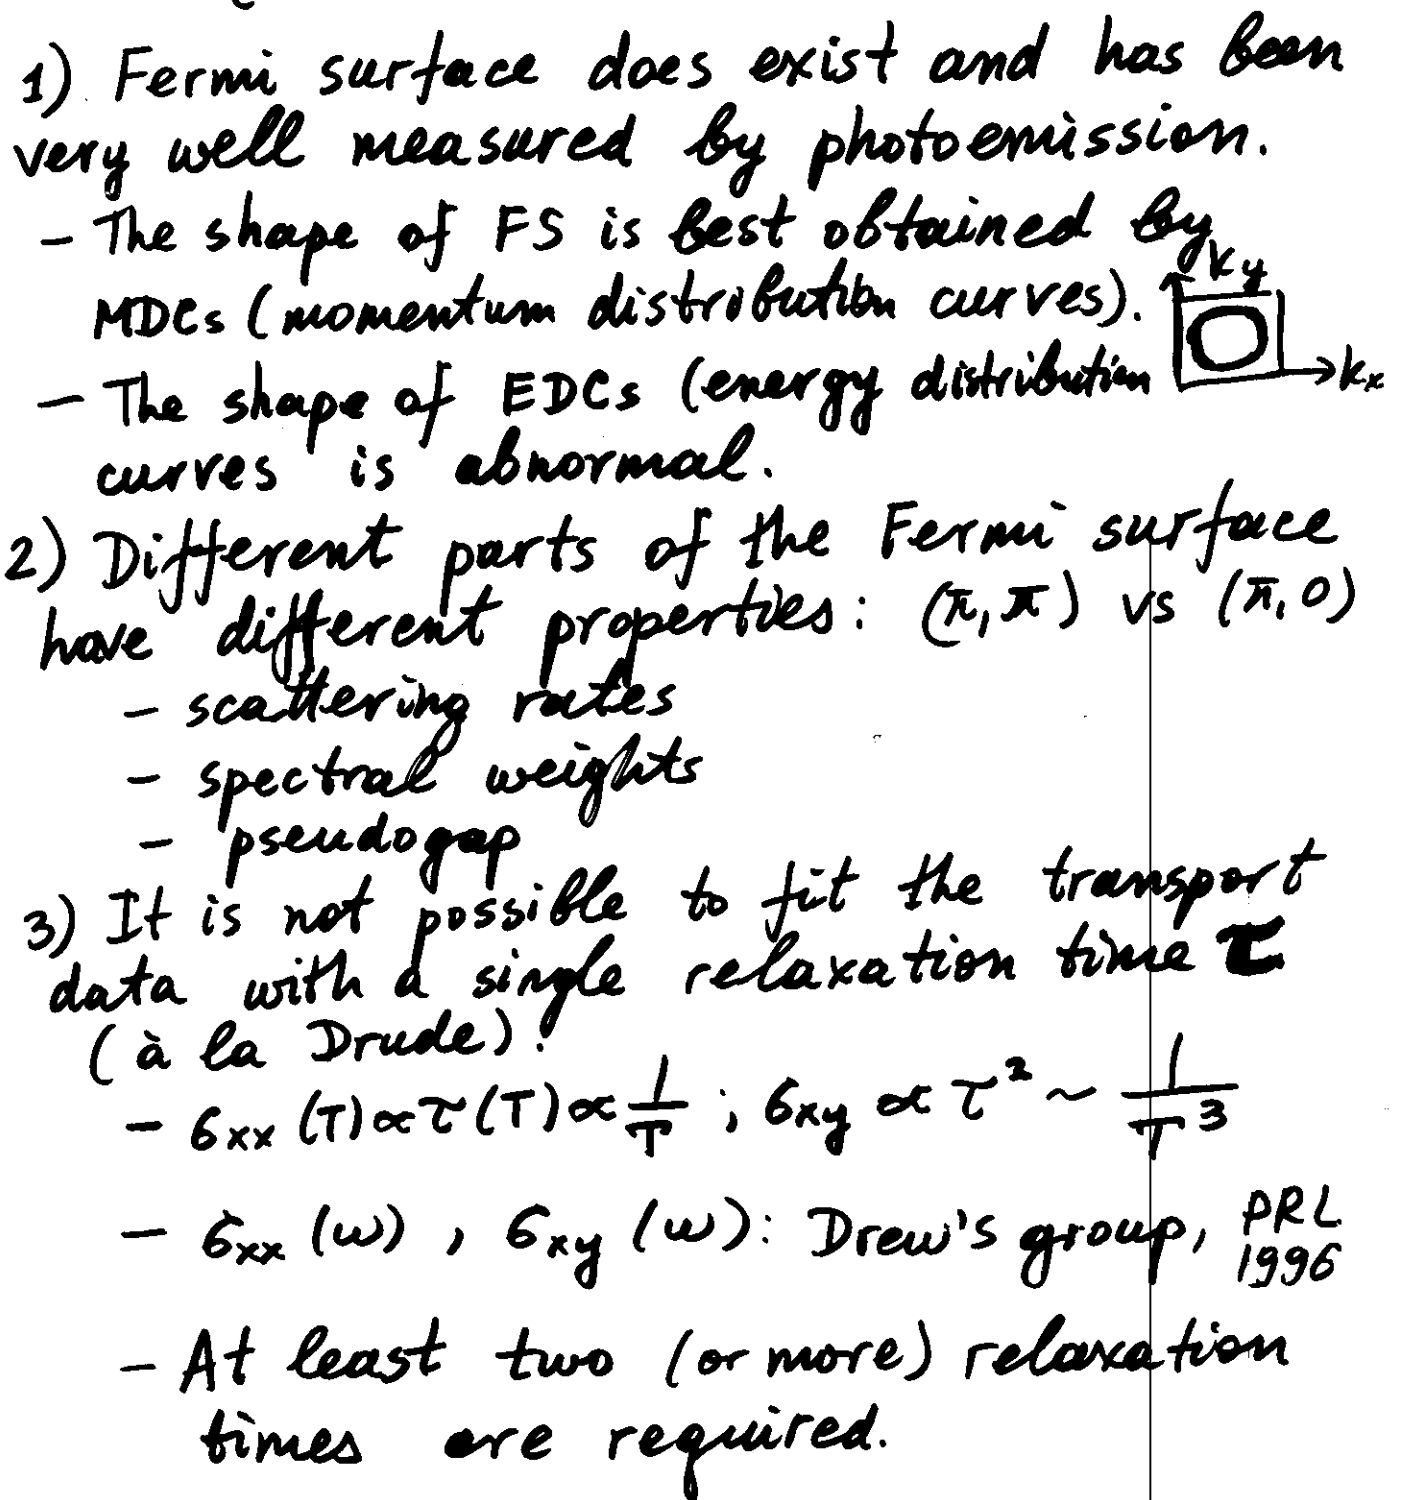 1) Fermi surface does exist and has been
very well measured by photoemission.
- The shape of FS is best obtained by
MDCs (momentum distribution curves).
ky
kx
- The shape of EDCs (energy distribution
curves is abnormal.
2) Different parts of the Fermi surface
have different properties: (π, π) vs (π, 0)
- scattering rates
- spectral weights
- pseudogap
3) It is not possible to fit the transport
data with a single relaxation time τ
(à la Drude):
- σxx (T) ∝ τ (T) ∝ 1/T ; σxy ∝ τ² ~ 1/T³
- σxx (ω) , σxy (ω): Drew's group, PRL 1996
- At least two (or more) relaxation
times are required.